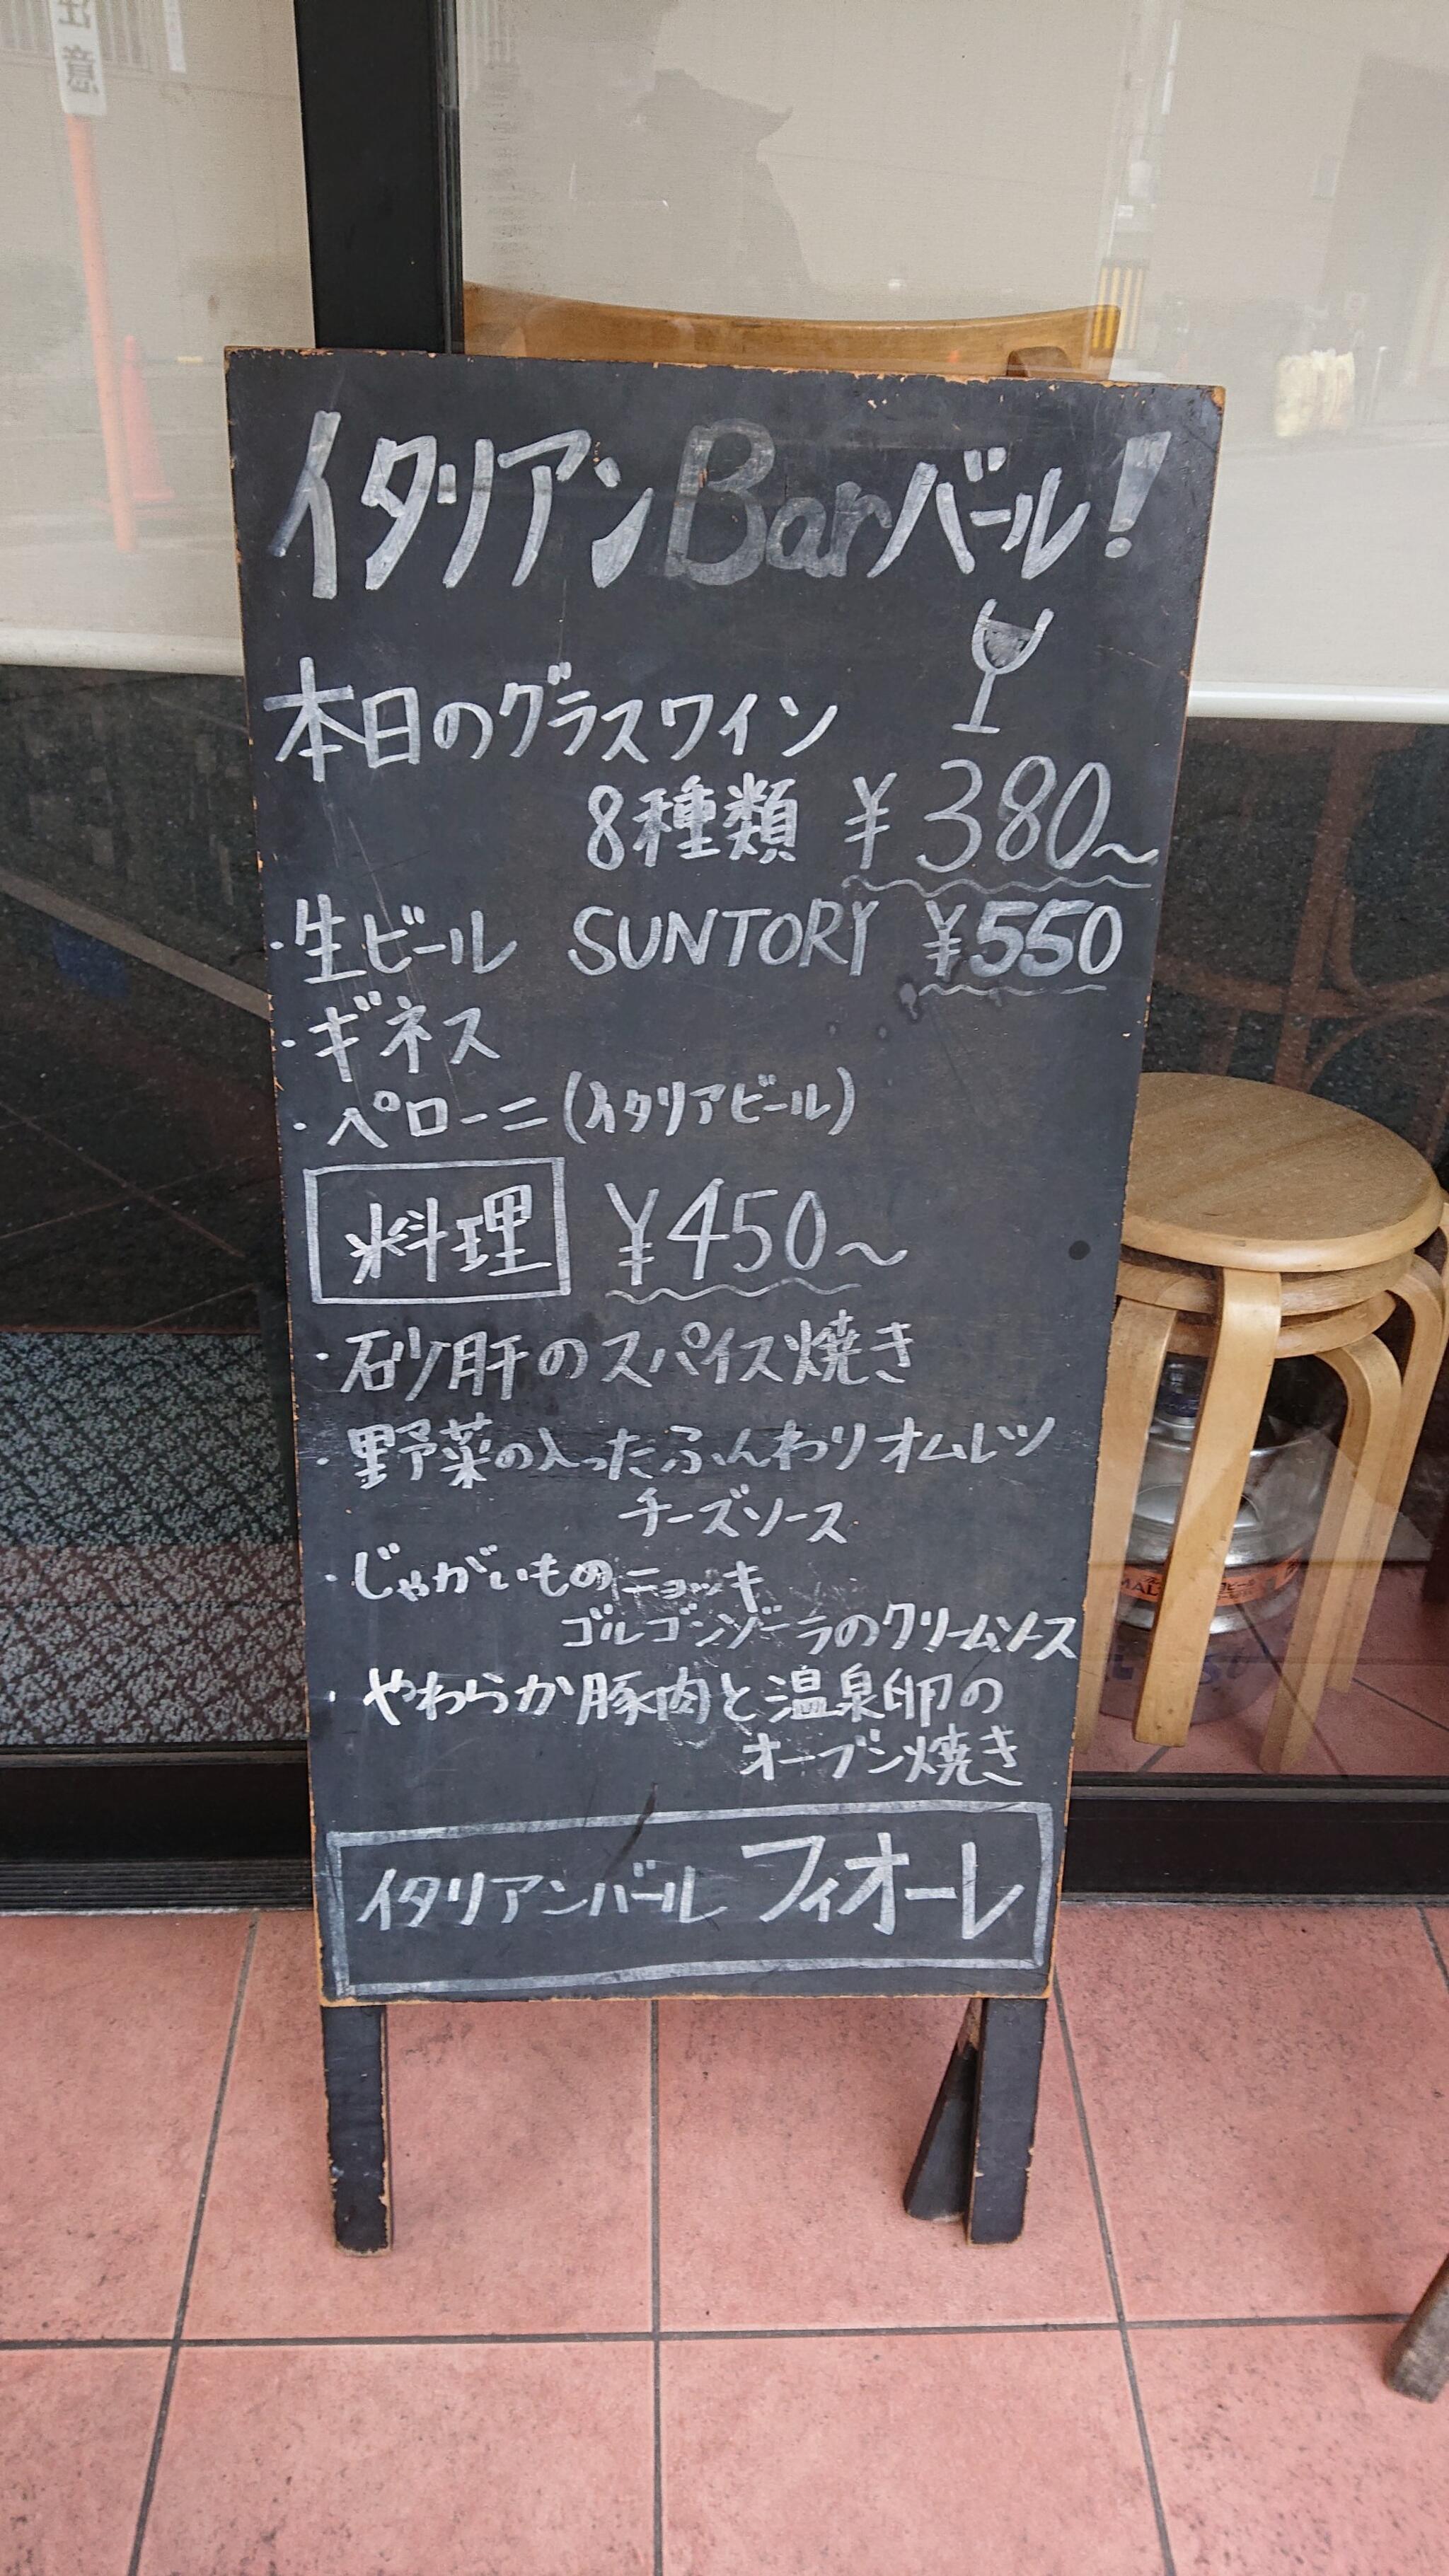 注意
イタリアンBarバール!
本日のグラスワイン
8種類 ¥380~
・生ビール SUNTORY ¥550
・ギネス
・ペローニ(イタリアビール)
料理 ¥450~
・砂肝のスパイス焼き
・野菜の入ったふんわりオムレツ
チーズソース
・じゃがいものニョッキ
ゴルゴンゾーラのクリームソース
・やわらか豚肉と温泉卵の
オーブン焼き
イタリアンバール フィオーレ